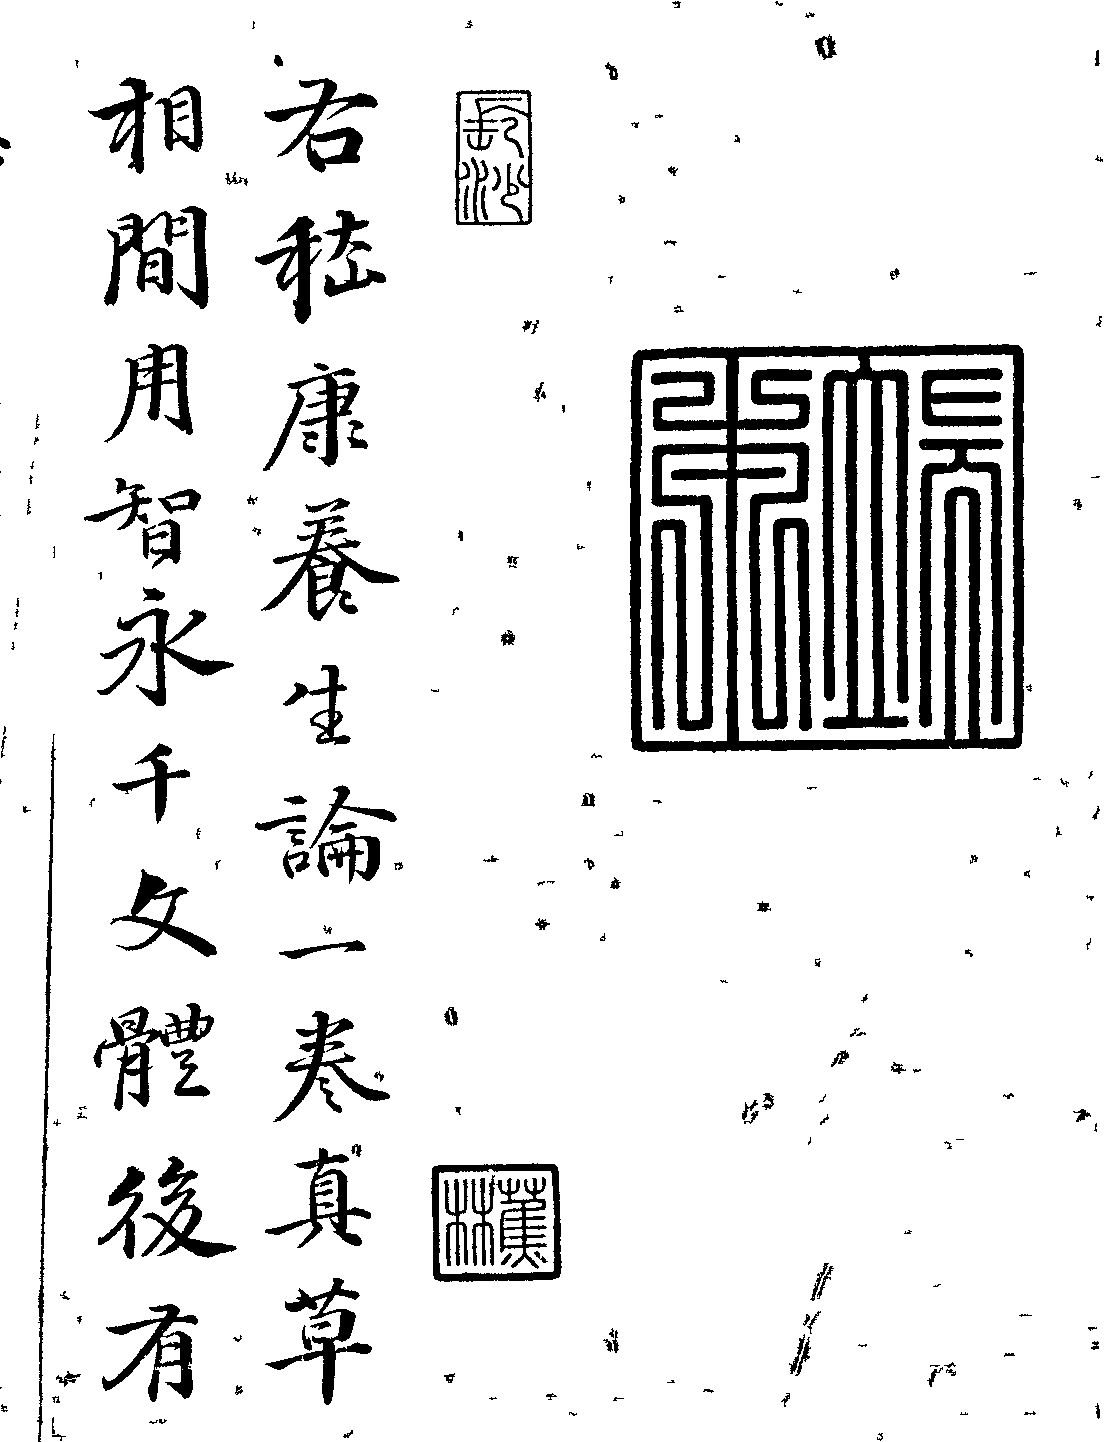 蕉林
右嵇康養生論一卷真草
相間用智永千文體後有